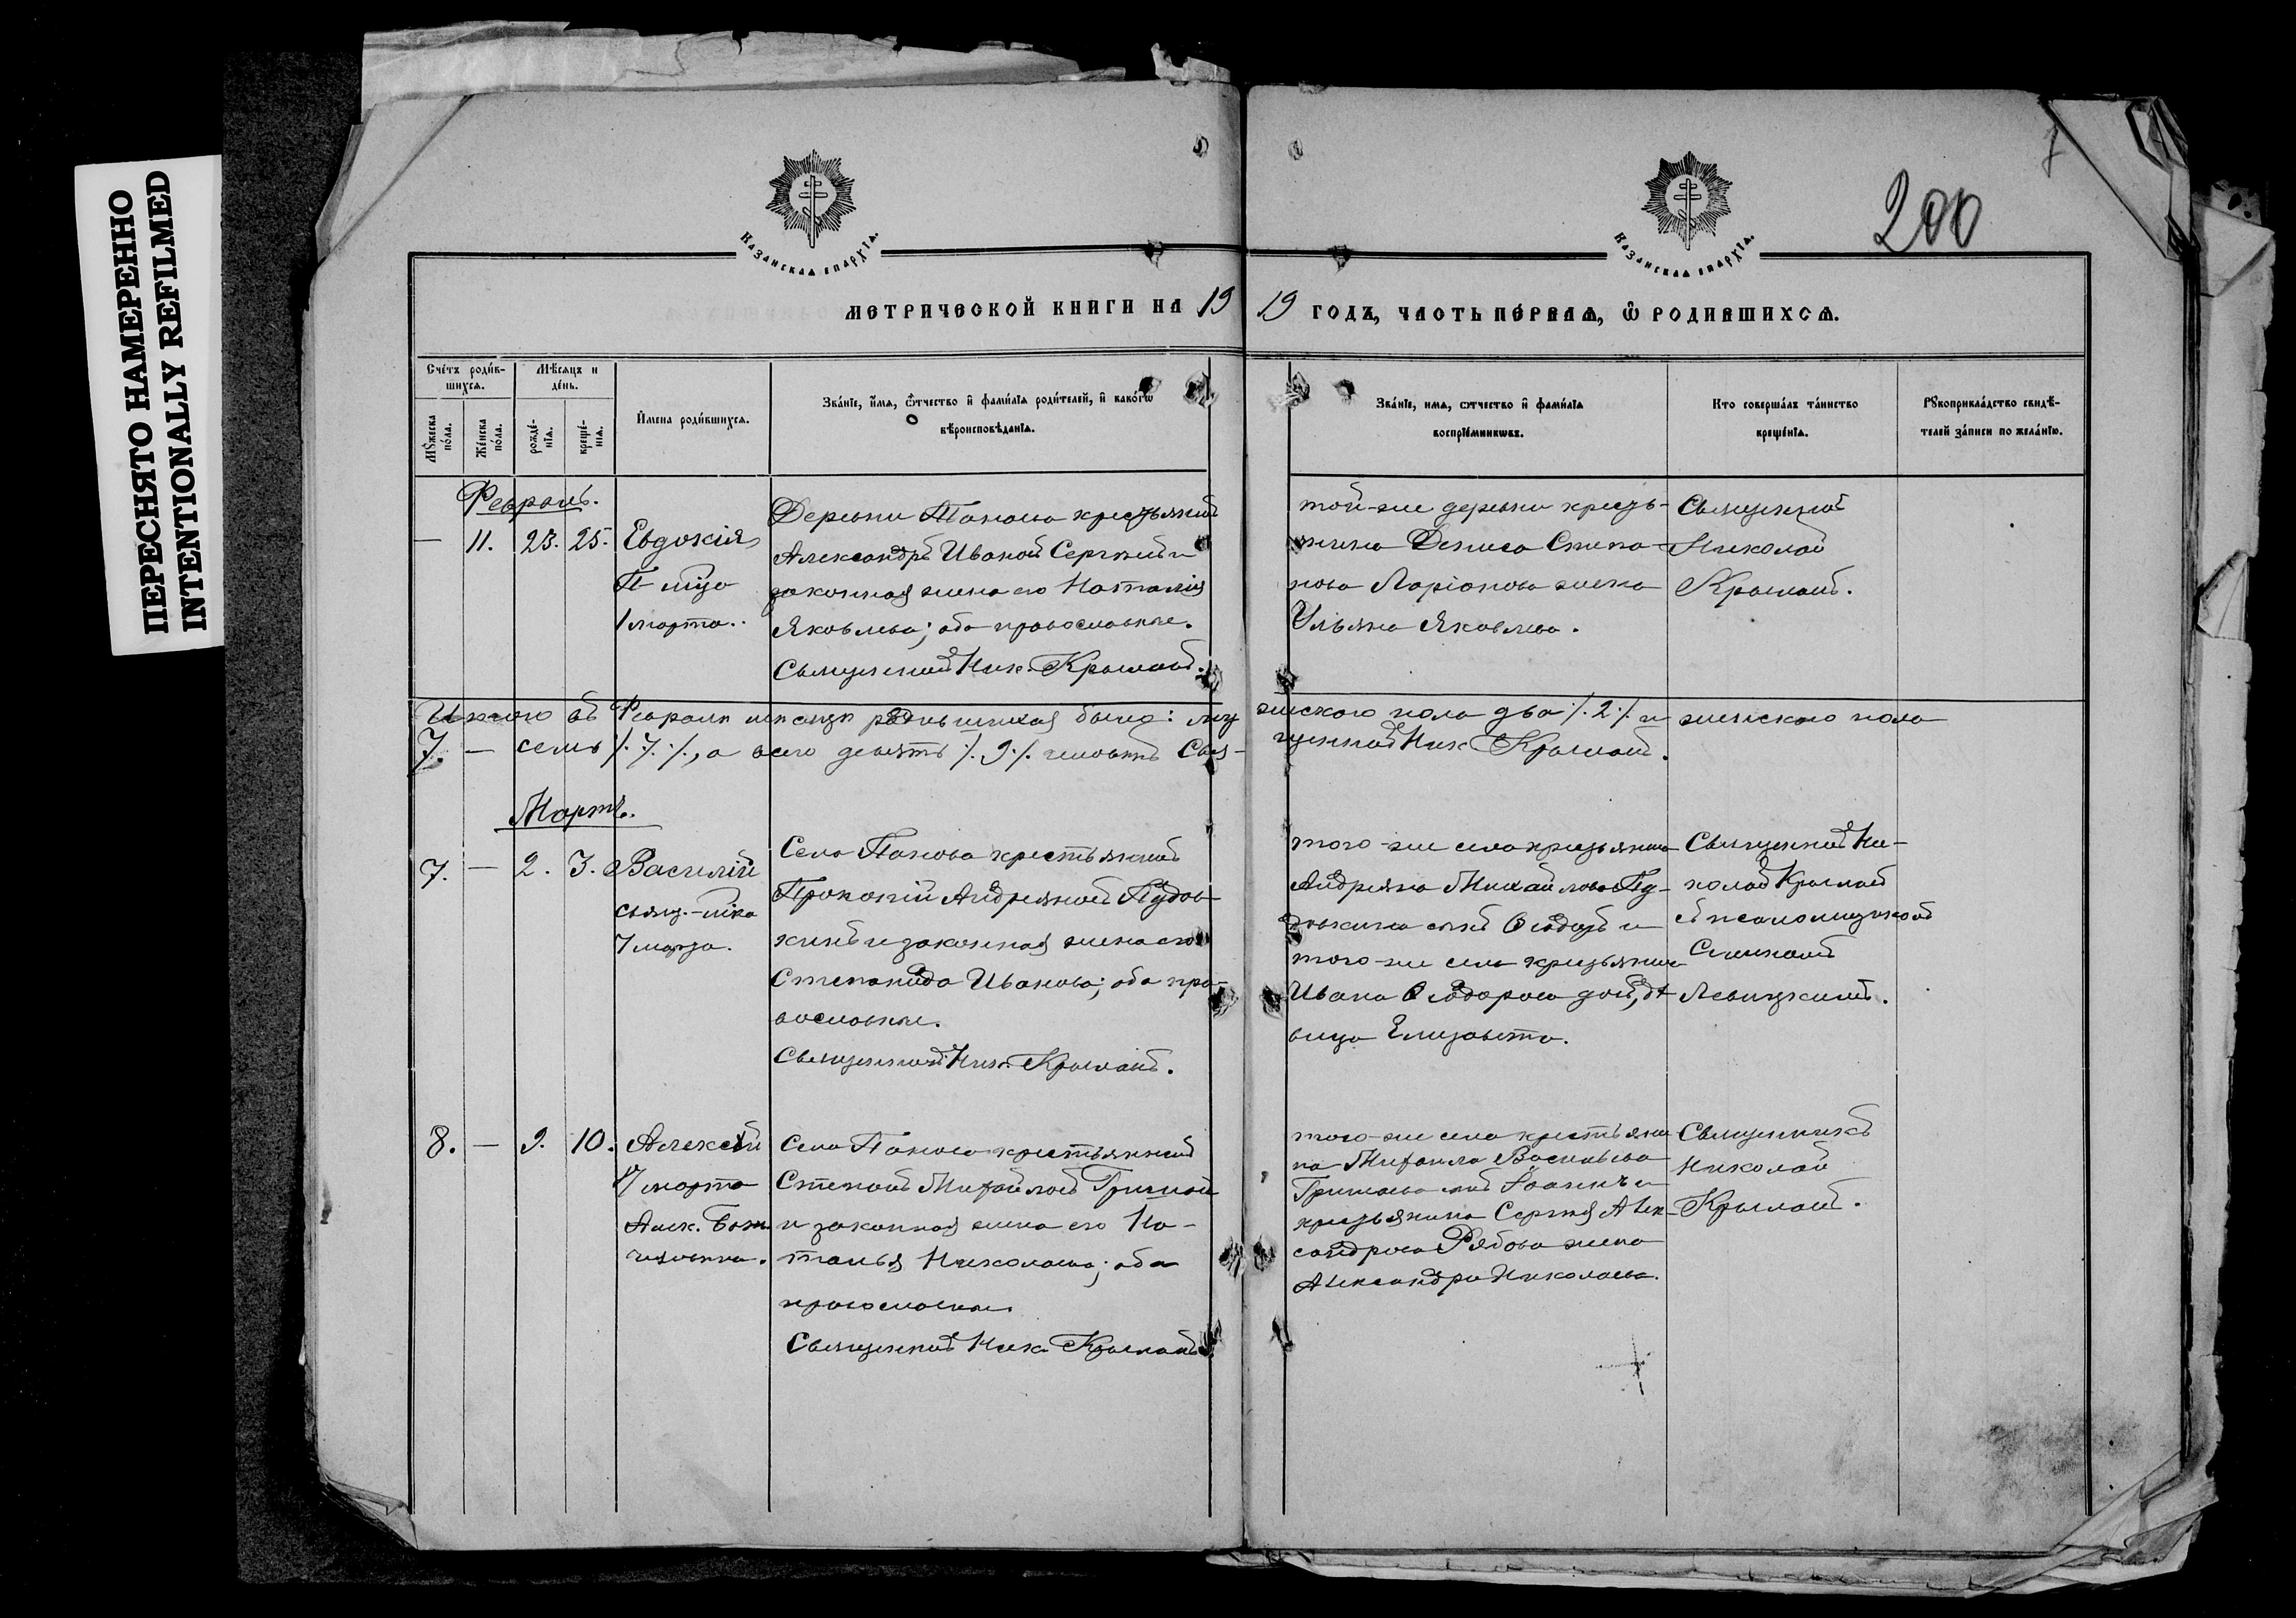 ПЕРЕСНЯТО НАМЕРЕННО
INTENTIONALLY REFILMED
200
КАЗАНСКАЯ ЕПАРХІЯ.
КАЗАНСКАЯ ЕПАРХІЯ.
МЕТРИЧЕСКОЙ КНИГИ НА 19 19 ГОДЪ, ЧАСТЬ ПЕРВАЯ, Ѡ РОДИВШИХСЯ.
Счётъ роди́в-
шихся.
Мѣсяцъ и
де́нь.
Мꙋ́жеска
по́ла.
Же́нска
по́ла.
рожде́-
нїѧ.
креще́-
нїѧ.
И҆мена роди́вшихсѧ.
Зва́нїе, и҆́мѧ, ѻ҆́тчество и҆ фами́лїѧ роди́телей, и҆ како́гѡ
вѣроисповѣ́данїѧ.
Зва́нїе, имѧ, ѻтчество и҆ фами́лїѧ
воспрїе́мникѡвъ.
Кто соверша́лъ та́инство
креще́нїѧ.
Рꙋкоприкла́дство свидѣ́-
телей за́писи по жела́нїю.
Февраль.
— 11. 23. 25. Евдокія,
1 марта.
Деревни Панова крестьянинъ
Александръ Ивановъ Сергѣевъ и
законная жена его Наталія
Яковлева; оба православные.
Священникъ Ник. Крыловъ.
той-же деревни кресть-
янина Дениса Степа-
нова Ларіонова жена
Ульяна Яковлева.
Священникъ
Николай
Крыловъ.
Итого въ Февралѣ мѣсяцѣ родившихся было: му жескаго пола два /.2./ и женскаго пола
7. — семь /.7./, а всего девять /.9./ человѣкъ Свя- щенникъ Ник. Крыловъ.
Мартъ.
7. — 2. 3. Василій
свящ.-мѣка
7 марта.
Села Панова крестьянинъ
Прокопій Андреяновъ Пудов-
кинъ и законная жена его
Степанида Иванова; оба пра-
вославные.
Священникъ Ник. Крыловъ.
того-же села крестьянина
Андреяна Михайлова Пу-
довкина сынъ Ѳеодоръ и
того-же села крестьянина
Ивана Ѳеодорова дочь, дѣ-
вица Елизавета.
Священникъ Ни-
колай Крыловъ
съ псаломщикомъ
Левицкимъ.
8. — 9. 10. Алексѣй
17 марта
Алек. Бож.
человѣка.
Села Панова крестьянинъ
Степанъ Михайловъ
и законная жена его На-
талья Николаева; оба
православные.
Священникъ Ник. Крыловъ.
того-же села крестьяни-
на Михаила Васильева
крестьянина Сергѣя Алек-
сандрова Рябова жена
Александра Николаева.
Священникъ
Николай
Крыловъ.